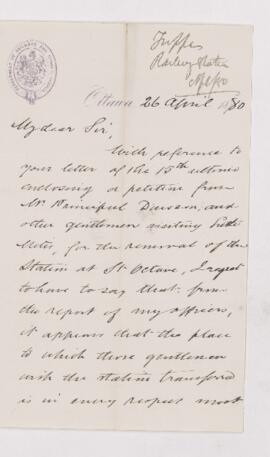 Tupper
Railway Station
Ottawa 26 April 1880
My dear Sir,
With reference to
your letter of the 15th ultimo
enclosing a petition from
Mr Principal Dawson, and
other gentlemen visiting Little
Metis, for the removal of the
Station at St Octave, I regret
to have to say that from
the report of my officers,
it appears that the place
to which those gentlemen
wish the station transferred
is in every respect most